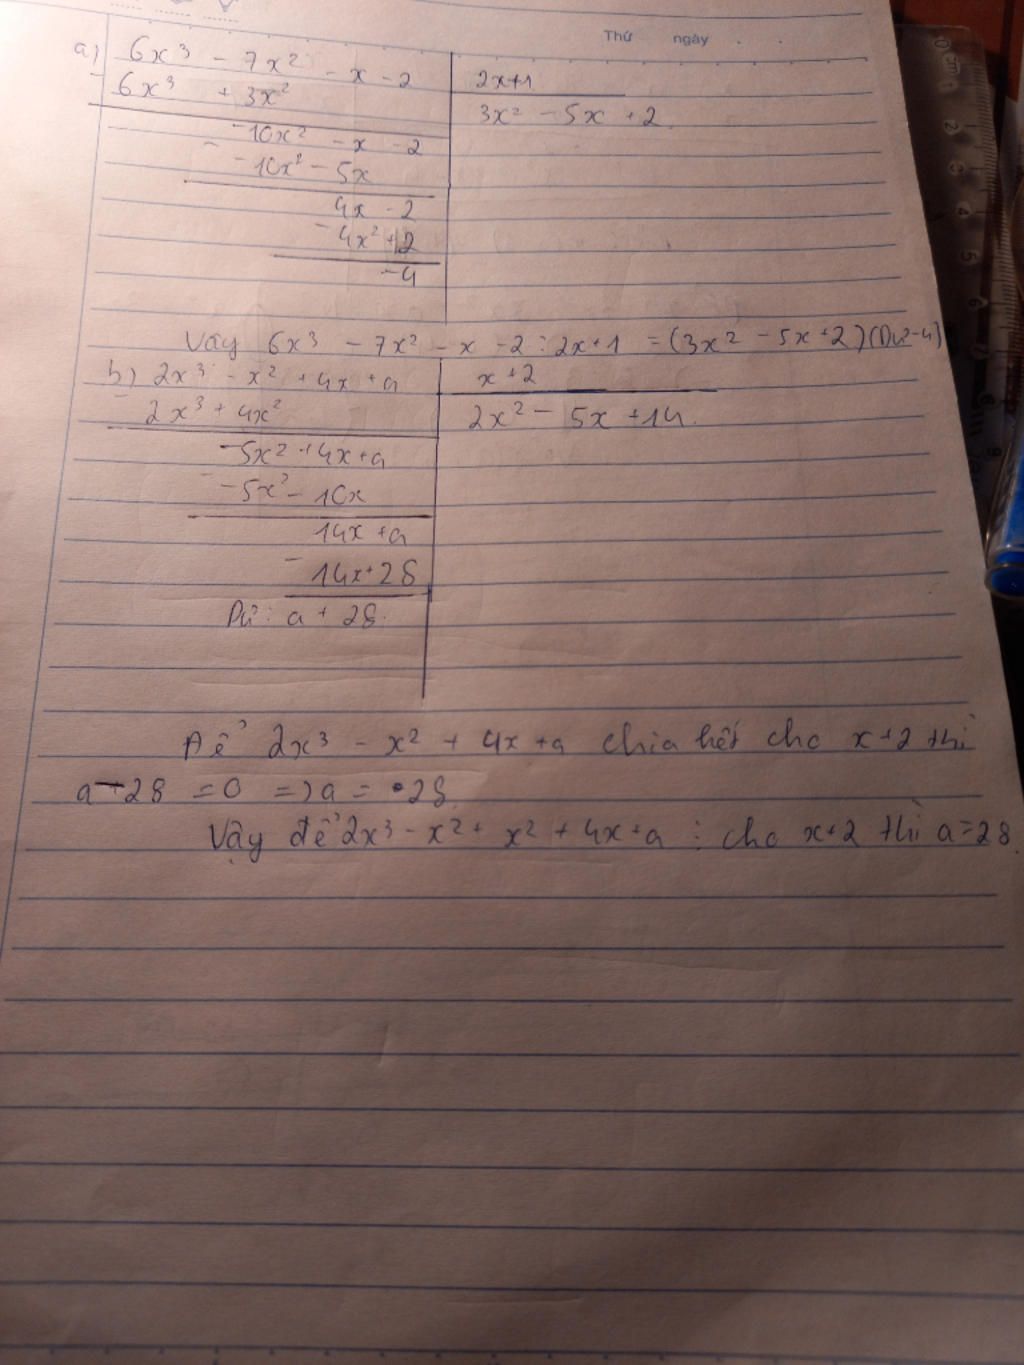 Thứ ngày . .
a) 6x³ - 7x² - x - 2 2x+1
- 6x³ + 3x² 3x² - 5x + 2
-10x² - x - 2
- -10x² - 5x
4x - 2
- 4x² + 2
-4
Vậy 6x³ - 7x² - x - 2 : 2x+1 = (3x² - 5x + 2) (Dư -4)
b) 2x³ - x² + 4x + a x + 2
- 2x³ + 4x² 2x² - 5x + 14.
-5x² + 4x + a
- -5x² - 10x
14x + a
- 14x + 28
Dư: a + 28.
Để 2x³ - x² + 4x + a chia hết cho x + 2 thì
a - 28 = 0 => a = 28.
Vậy để 2x³ - x² + x² + 4x + a : cho x + 2 thì a = 28.